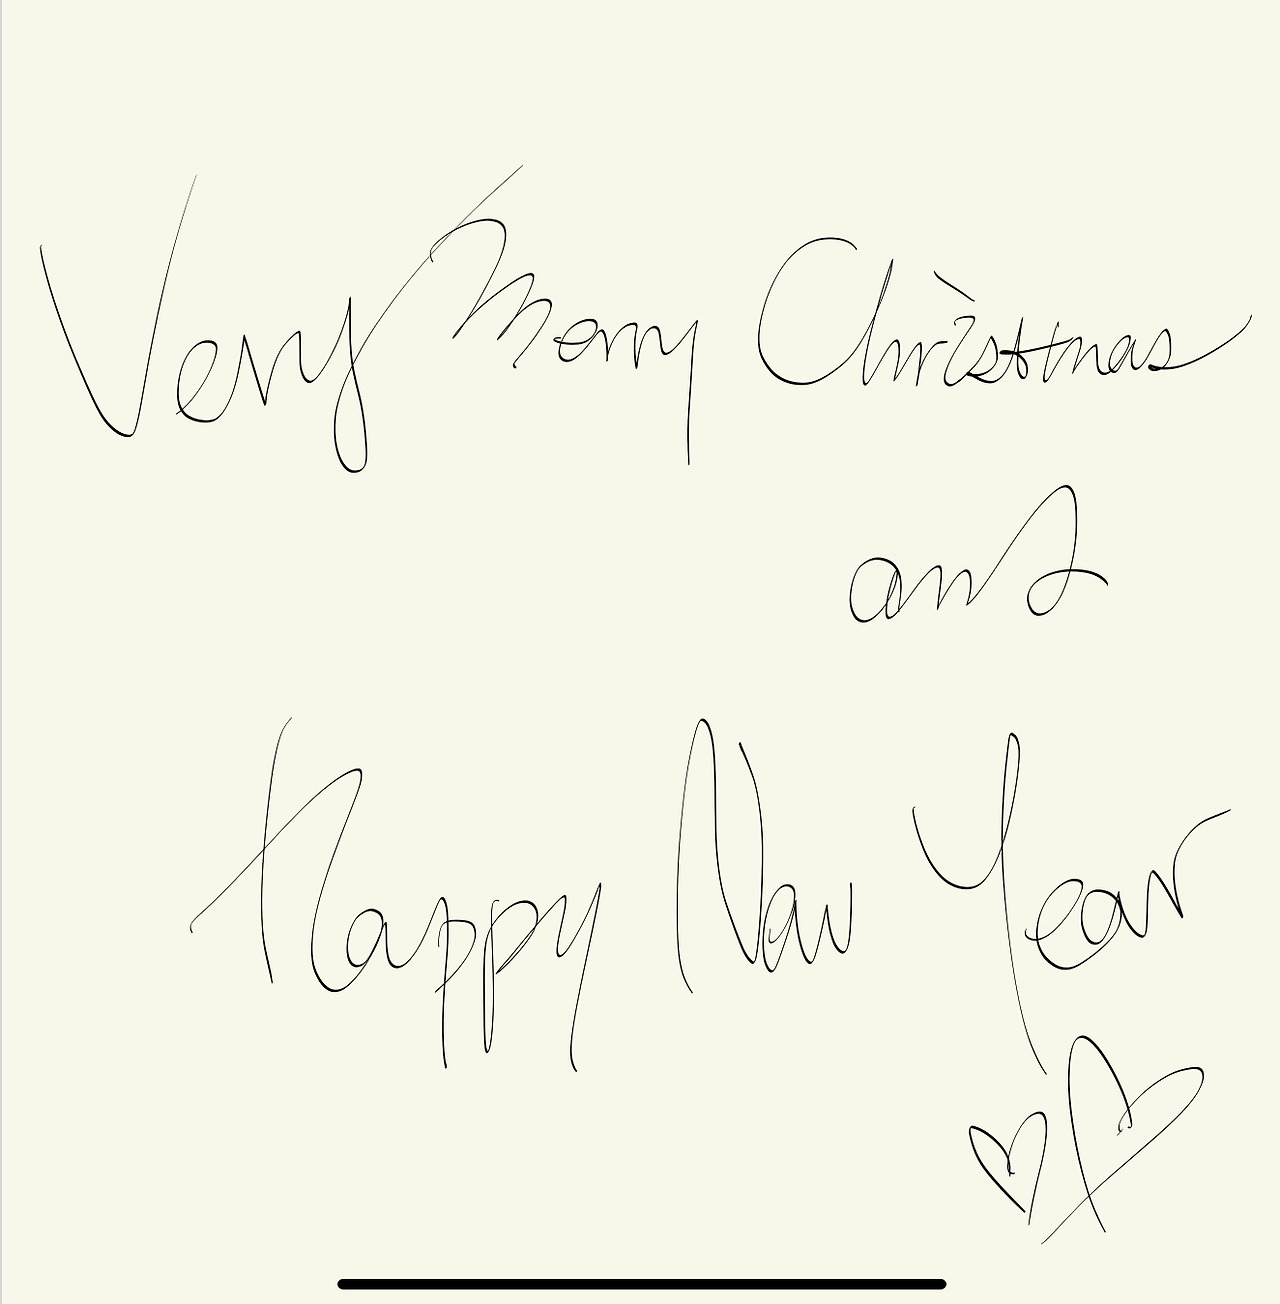 Very Merry Christmas
and
Happy New Year